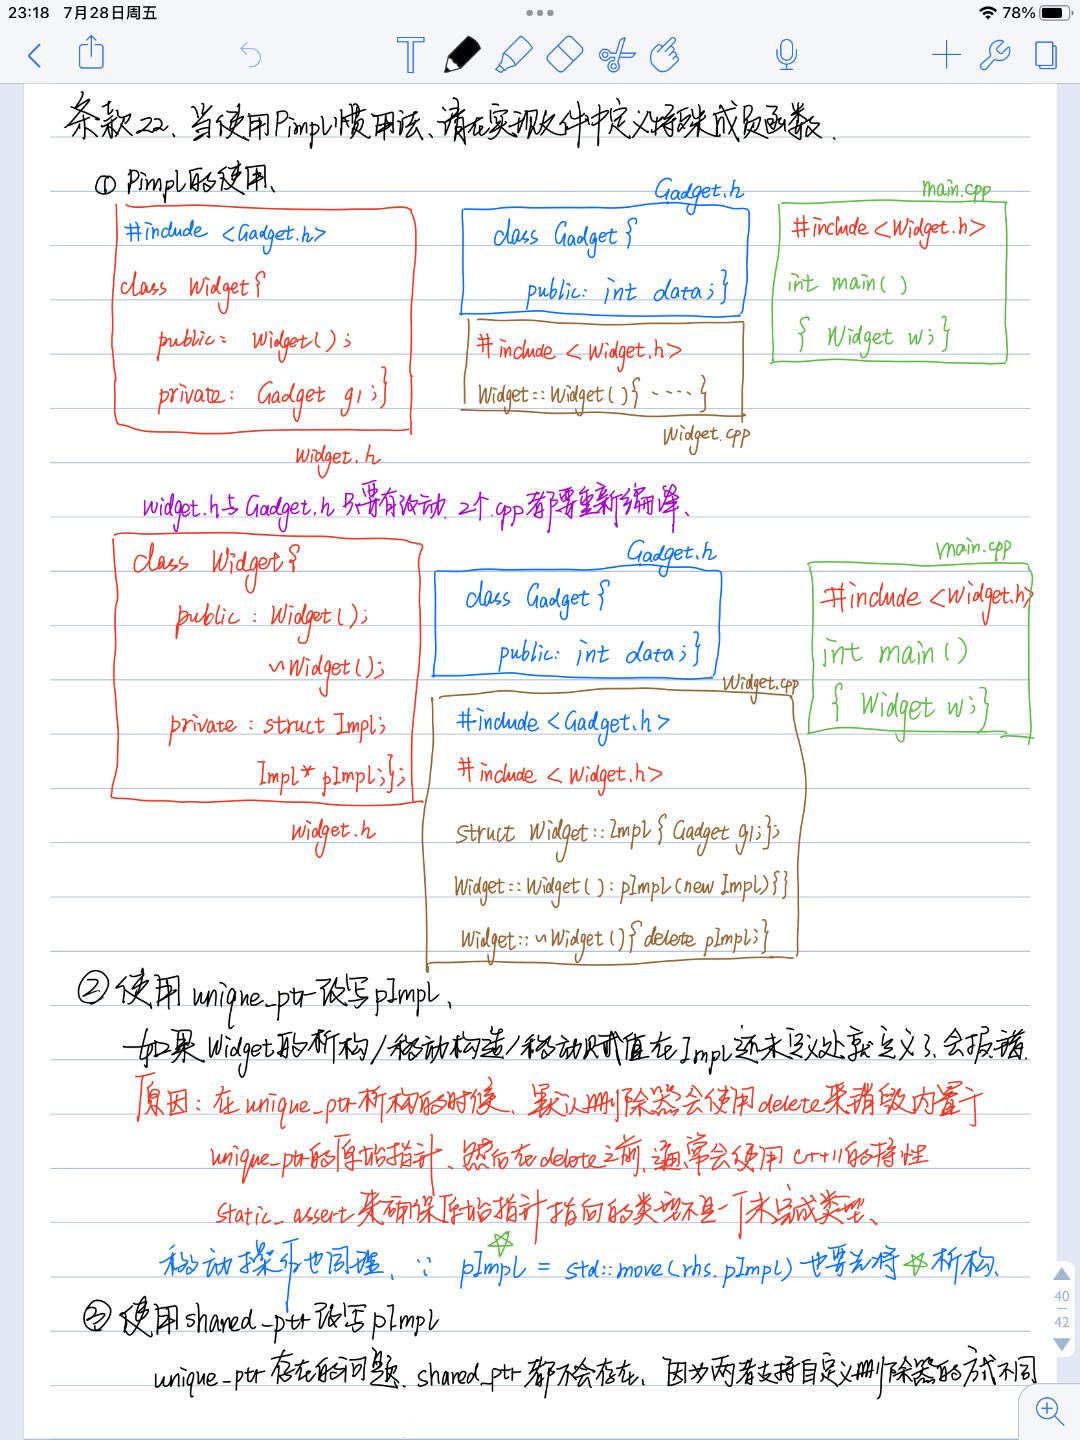 23:18 7月28日周五
78%
条款22、当使用Pimpl惯用法、请在实现文件中定义特殊成员函数.
① Pimpl的使用、
Gadget.h
main.cpp
#include <Gadget.h>
class Widget{
public: Widget();
private: Gadget g1;}
Widget.h
class Gadget{
public: int data;}
#include <Widget.h>
Widget::Widget(){ ····}
Widget.cpp
#include <Widget.h>
int main()
{ Widget w;}
Widget.h与Gadget.h只要有改动 2个.cpp都要重新编译、
class Widget{
public: Widget();
~Widget();
private: struct Impl;
Impl* pImpl;};
Widget.h
Gadget.h
class Gadget{
public: int data;}
Widget.cpp
#include <Gadget.h>
#include <Widget.h>
struct Widget::Impl{ Gadget g1;};
Widget::Widget(): pImpl(new Impl){}
Widget::~Widget(){ delete pImpl;}
main.cpp
#include <Widget.h>
int main()
{ Widget w;}
② 使用unique_ptr改写pImpl、
如果Widget的析构/移动构造/移动赋值在Impl还未定义处就定义了、会报错.
原因: 在unique_ptr析构的时候、默认删除器会使用delete来销毁内置于
unique_ptr的原始指针、然后在delete之前,通常会使用C++11的特性
static_assert来确保原始指针指向的类型不是一个未完成类型、
移动操作也同理、∵ pImpl = std::move(rhs.pImpl) 也要先将☆析构、
☆
③ 使用shared_ptr改写pImpl
unique_ptr存在的问题、shared_ptr都不会存在、因为两者支持自定义删除器的方式不同
40
42